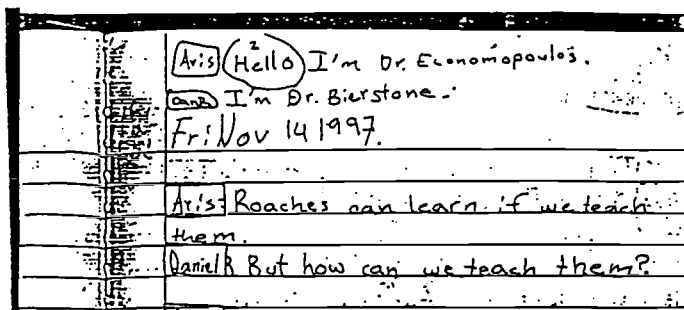 Aris Hello 2 I'm Dr. Economopoulos.
DanB I'm Dr. Bierstone.
Fri Nov 14 1997.
Aris: Roaches can learn if we teach
them.
Daniel B But how can we teach them?